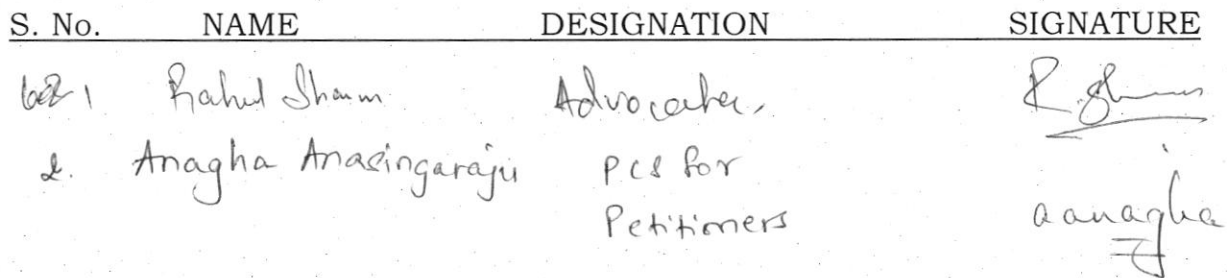 S. No. NAME DESIGNATION SIGNATURE
1 Rahul Advocate,
2. Anagha Anasingaraju PCS for
Petitioners
aanagha